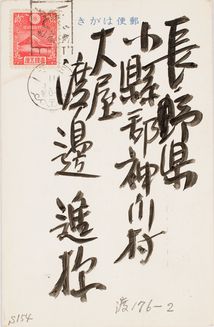 郵便はがき
長野県
小縣郡神川村
大屋
渡邊進様
渡176-2
S154